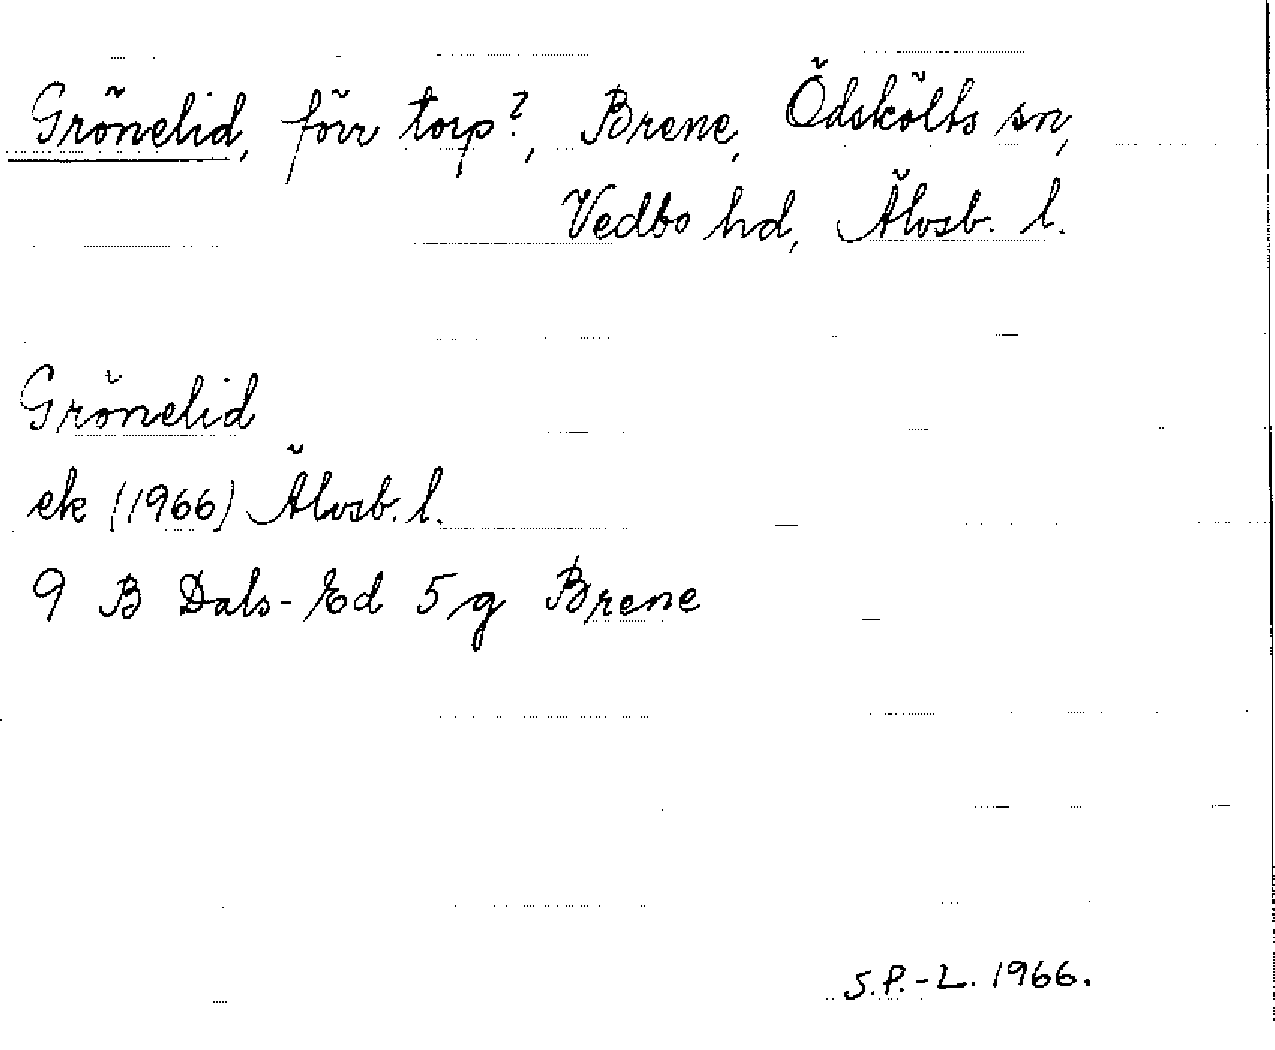 Grönelid, förr torp?, Brene, Ödskölts sn,
Vedbo hd, Älvsb. l.
Grönelid
ek (1966) Älvsb. l.
9 B Dals-Ed 5 g Brene
S.P.-L. 1966.